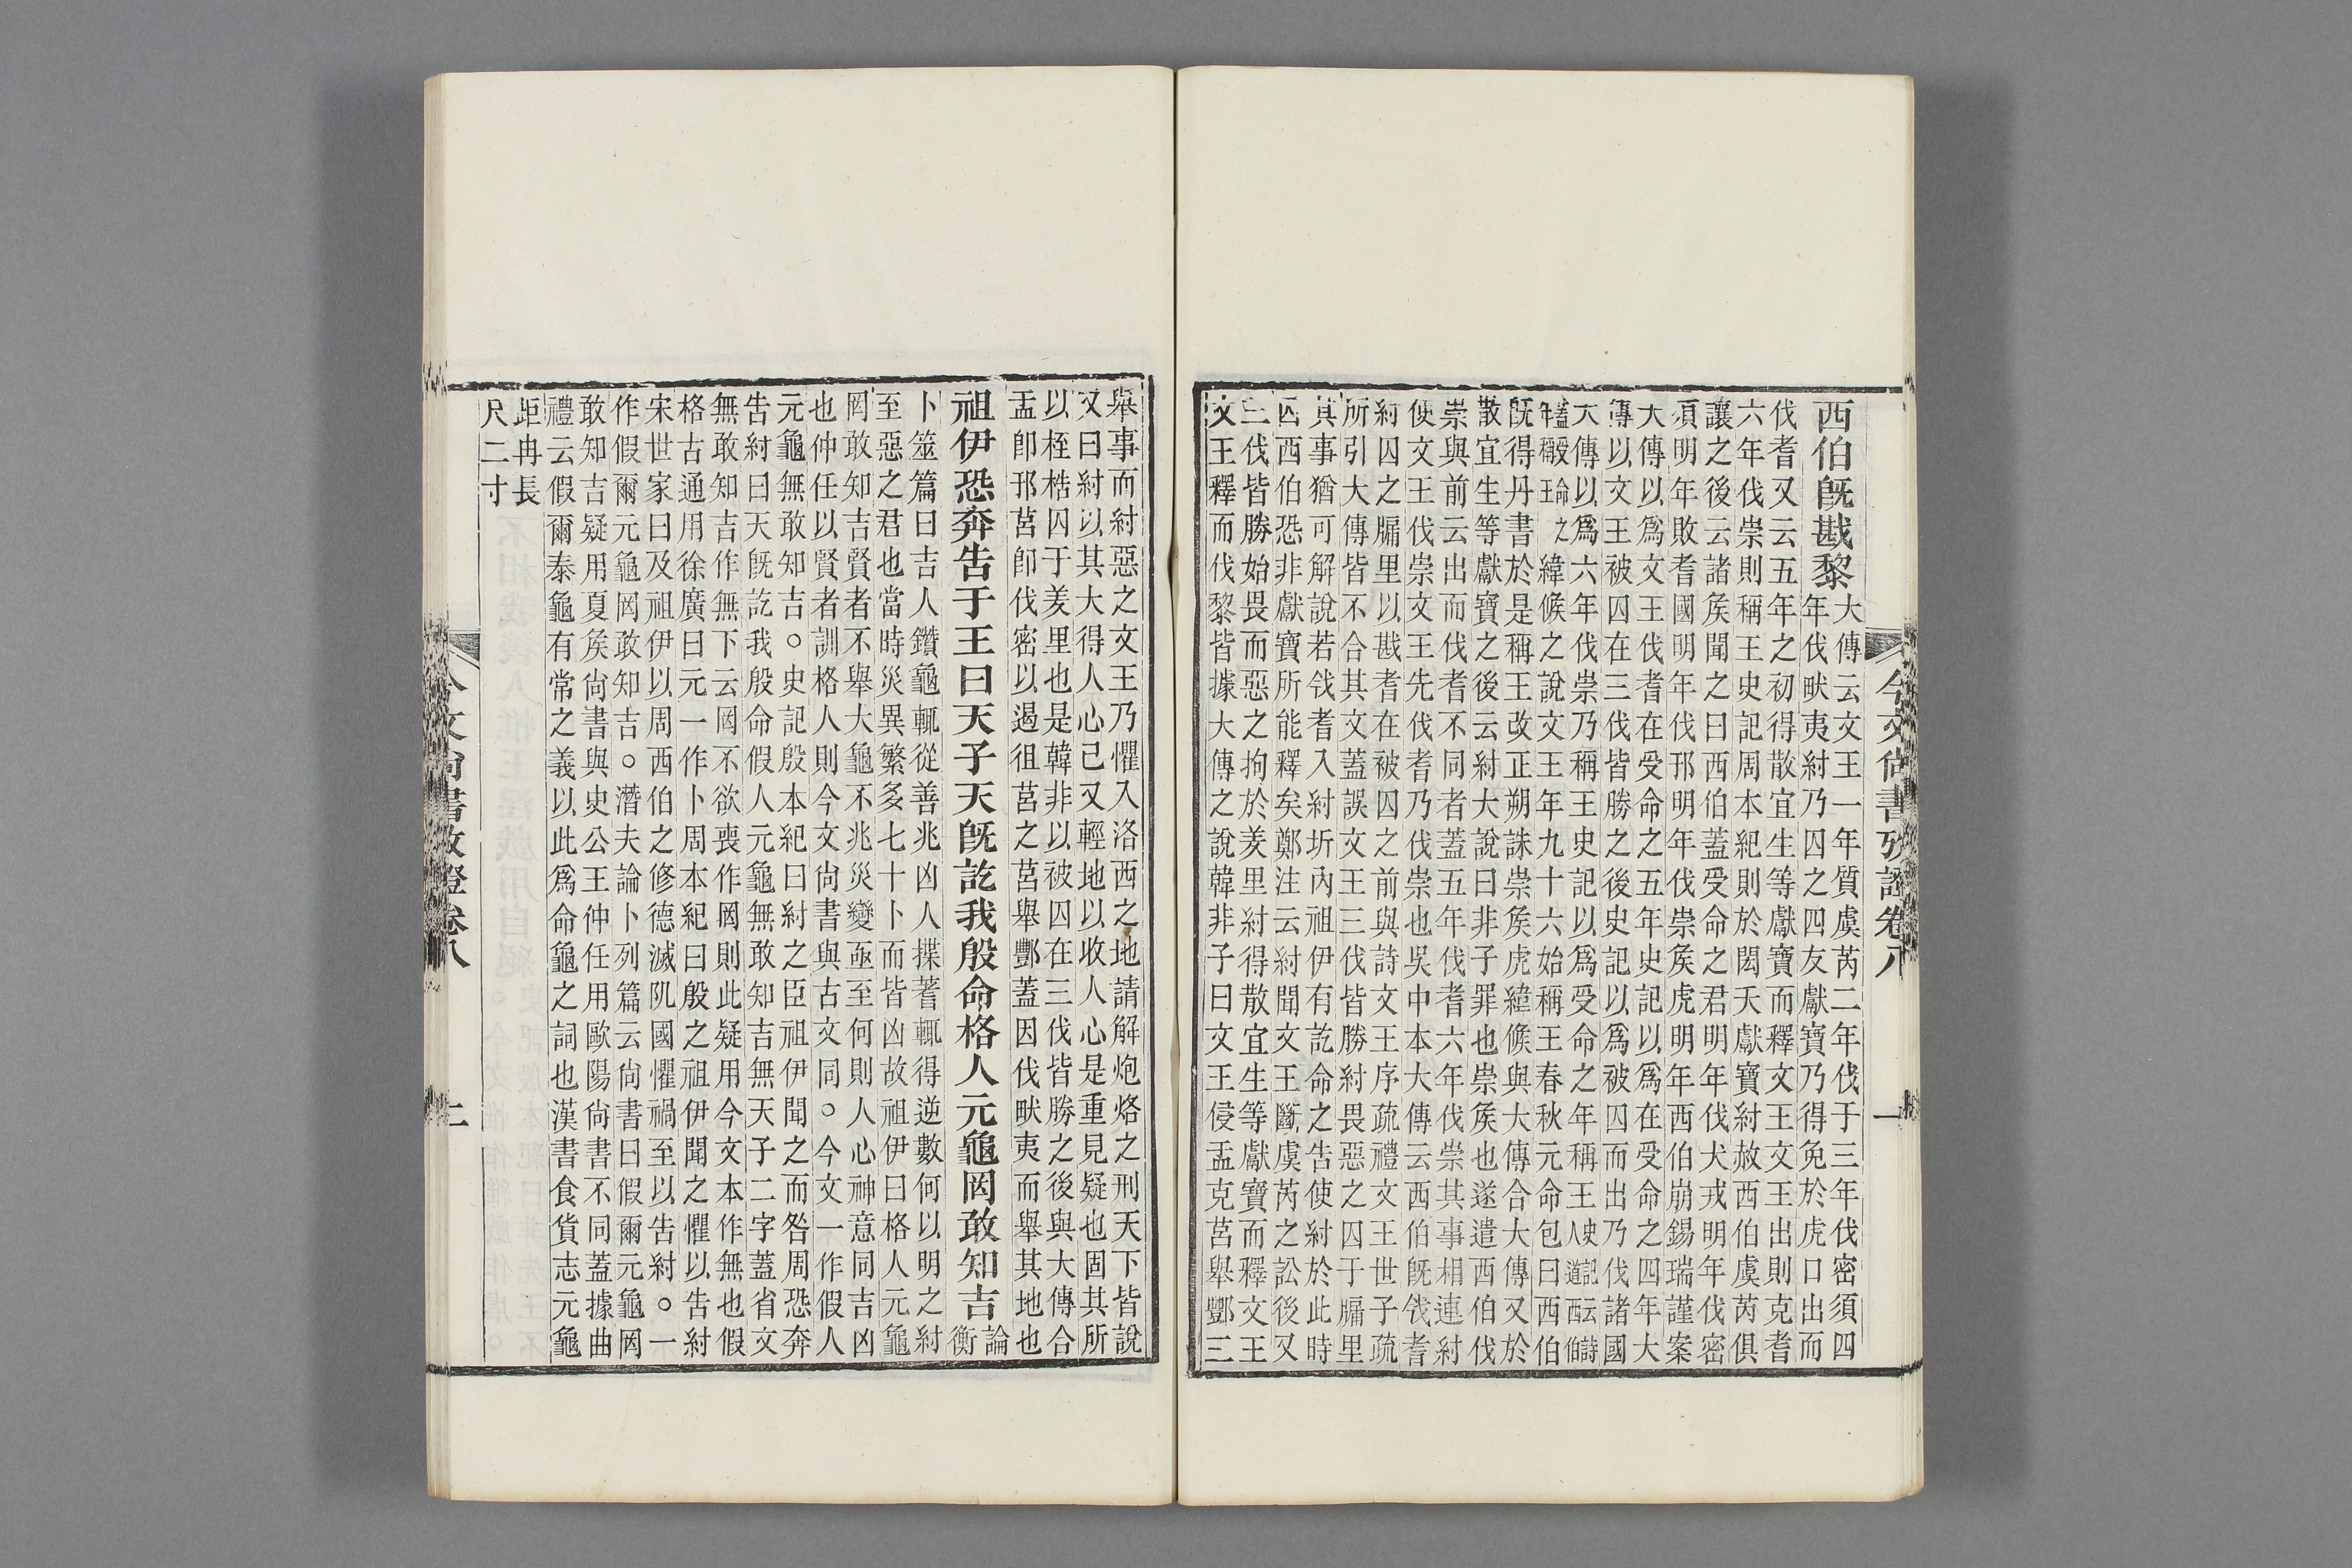 今文尚書攷證卷八
一
西伯旣戡黎
大傳云文王一年質虞芮二年伐于三年伐密須四
年伐畎夷紂乃囚之四友獻寶乃得免於虎口出而
伐耆又云五年之初得散宜生等獻寶而釋文王文王出則克耆
六年伐崇則稱王史記周本紀則於閎夭獻寶紂赦西伯虞芮俱
讓之後云諸矦聞之曰西伯蓋受命之君明年伐犬戎明年伐密
須明年敗耆國明年伐邘明年伐崇矦虎明年西伯崩錫瑞謹案
大傳以爲文王伐耆在受命之五年史記以爲在受命之四年大
傳以文王被囚在三伐皆勝之後史記以爲被囚而出乃伐諸國
大傳以爲六年伐崇乃稱王史記以爲受命之年稱王史記云詩人道西伯
蓋受命之年稱王緯候之說文王年九十六始稱王春秋元命包曰西伯
旣得丹書於是稱王改正朔誅崇矦虎緯候與大傳合大傳又於
散宜生等獻寶之後云紂大說曰非子罪也崇矦也遂遣西伯伐
崇與前云出而伐耆不同者蓋五年伐耆六年伐崇其事相連紂
使文王伐崇文王先伐耆乃伐崇也吴中本大傳云西伯旣戗耆
紂囚之牖里以戡耆在被囚之前與詩文王序疏禮文王世子疏
所引大傳皆不合其文蓋誤文王三伐皆勝紂畏惡之囚于牖里
其事猶可解說若戗耆入紂圻內祖伊有訖命之告使紂於此時
囚西伯恐非獻寶所能釋矣鄭注云紂聞文王斷虞芮之訟後又
三伐皆勝始畏而惡之拘於羑里紂得散宜生等獻寶而釋文王
文王釋而伐黎皆據大傳之說韓非子曰文王侵盂克莒舉酆三
舉事而紂惡之文王乃懼入洛西之地請解炮烙之刑天下皆說
又曰紂以其大得人心己又輕地以收人心是重見疑也固其所
以桎梏囚于羑里也是韓非以被囚在三伐皆勝之後與大傳合
盂卽邘莒卽伐密以遏徂莒之莒舉酆蓋因伐畎夷而舉其地也
祖伊恐奔告于王曰天子天旣訖我殷命格人元龜罔敢知吉
論衡
卜筮篇曰吉人鑽龜輒從善兆凶人揲蓍輒得逆數何以明之紂
至惡之君也當時災異繁多七十卜而皆凶故祖伊曰格人元龜
罔敢知吉賢者不舉大龜不兆災變亟至何則人心神意同吉凶
也仲任以賢者訓格人則今文尚書與古文同○今文一作假人
元龜無敢知吉○史記殷本紀曰紂之臣祖伊聞之而咎周恐奔
告紂曰天旣訖我殷命假人元龜無敢知吉無天子二字蓋省文
無敢知吉作無下云罔不欲喪作罔則此疑用今文本作無也假
格古通用徐廣曰元一作卜周本紀曰殷之祖伊聞之懼以告紂
宋世家曰及祖伊以周西伯之修德滅阢國懼禍至以告紂○一
作假爾元龜罔敢知吉○潛夫論卜列篇云尚書曰假爾元龜罔
敢知吉疑用夏矦尚書與史公王仲任用歐陽尚書不同蓋據曲
禮云假爾泰龜有常之義以此爲命龜之詞也漢書食貨志元龜
距冉長
尺二寸
今文尚書攷證卷八
二